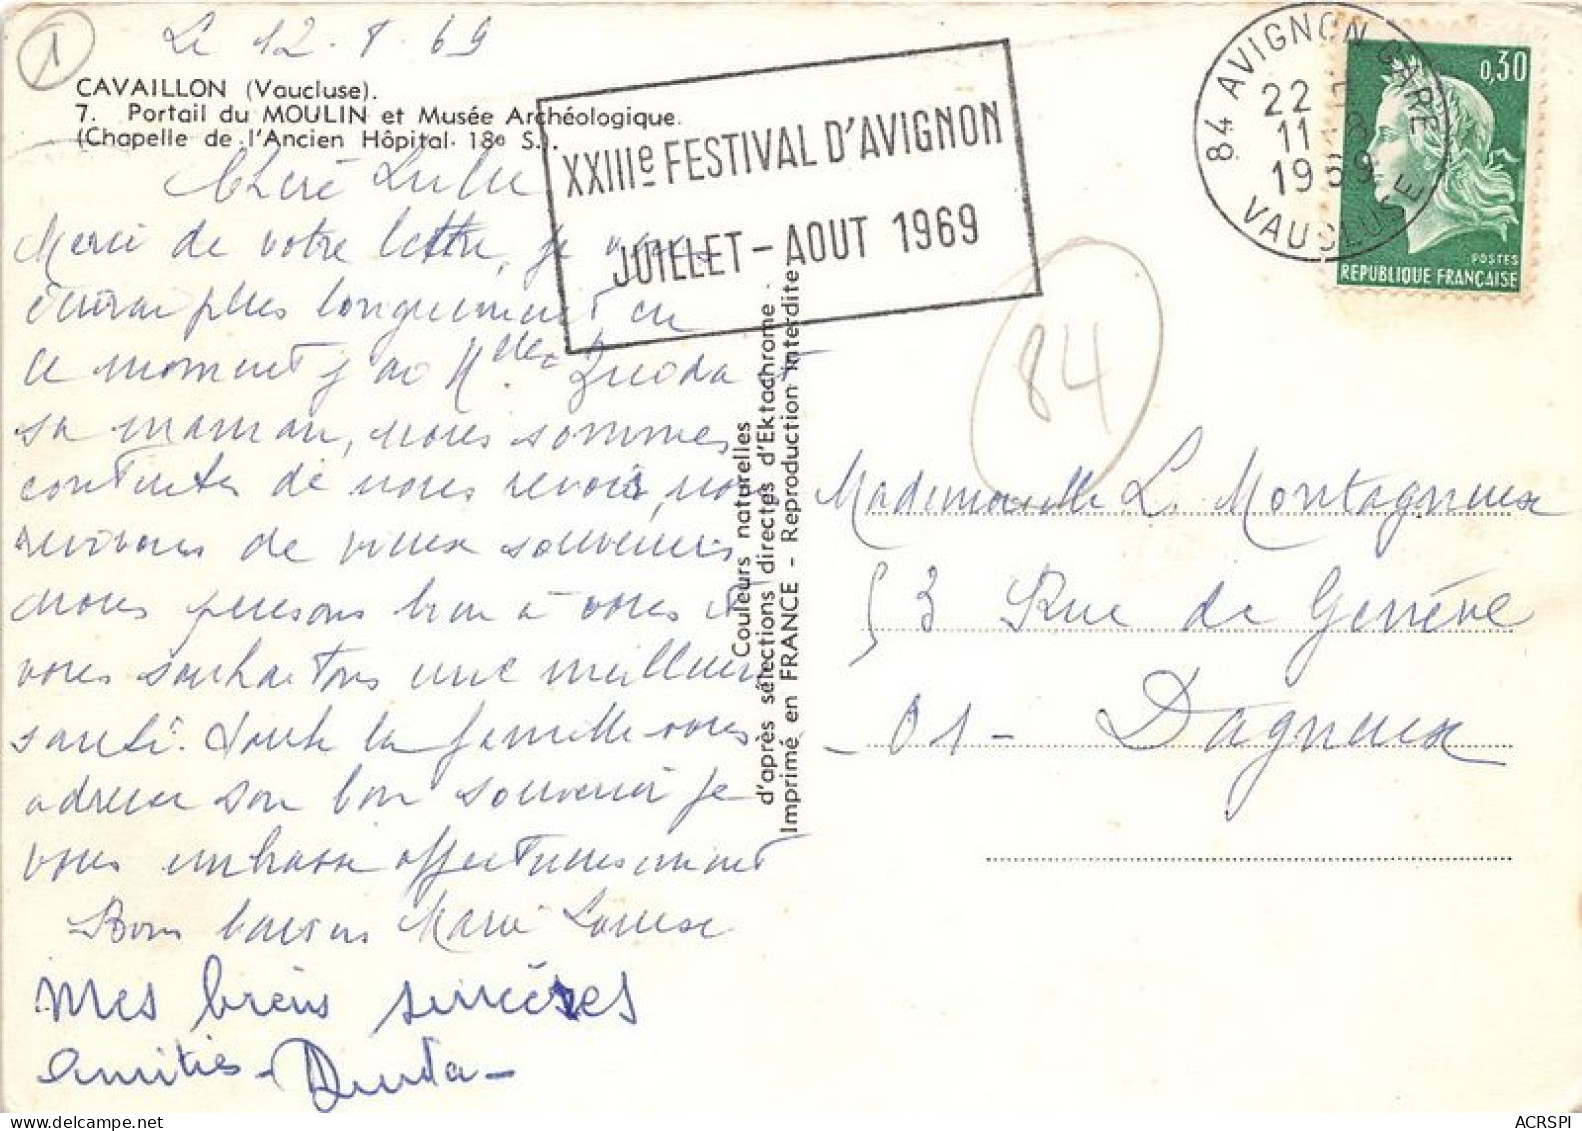 1
Le 12-8-69
CAVAILLON (Vaucluse).
7. Portail du MOULIN et Musée Archéologique.
(Chapelle de l'Ancien Hôpital- 18e S.).
XXIIIe FESTIVAL D'AVIGNON
JUILLET - AOUT 1969
84 AVIGNON GARE
22
11
1969
VAUCLUSE
0,30
POSTES
REPUBLIQUE FRANÇAISE
84
Chère Lulu
Merci de votre lettre, je vous
écrirai plus longuement en
ce moment j'ai Mlle et
sa maman, nous sommes
contentes de nous revoir, nous
revivons de vieux souvenirs
nous pensons bien à vous et
vous souhaitons une meilleure
santé. Toute la famille vous
adresse son bon souvenir je
vous embrasse affectueusement
Bons baisers Marie Louise
Mes biens sincères
amitiés -
Couleurs naturelles
d'après sélections directes d'Ektachrome.
Imprimé en FRANCE - Reproduction interdite
Mademoiselle L. Montagneux
53 Rue de Genève
-01- Dagneux
ACRSPI